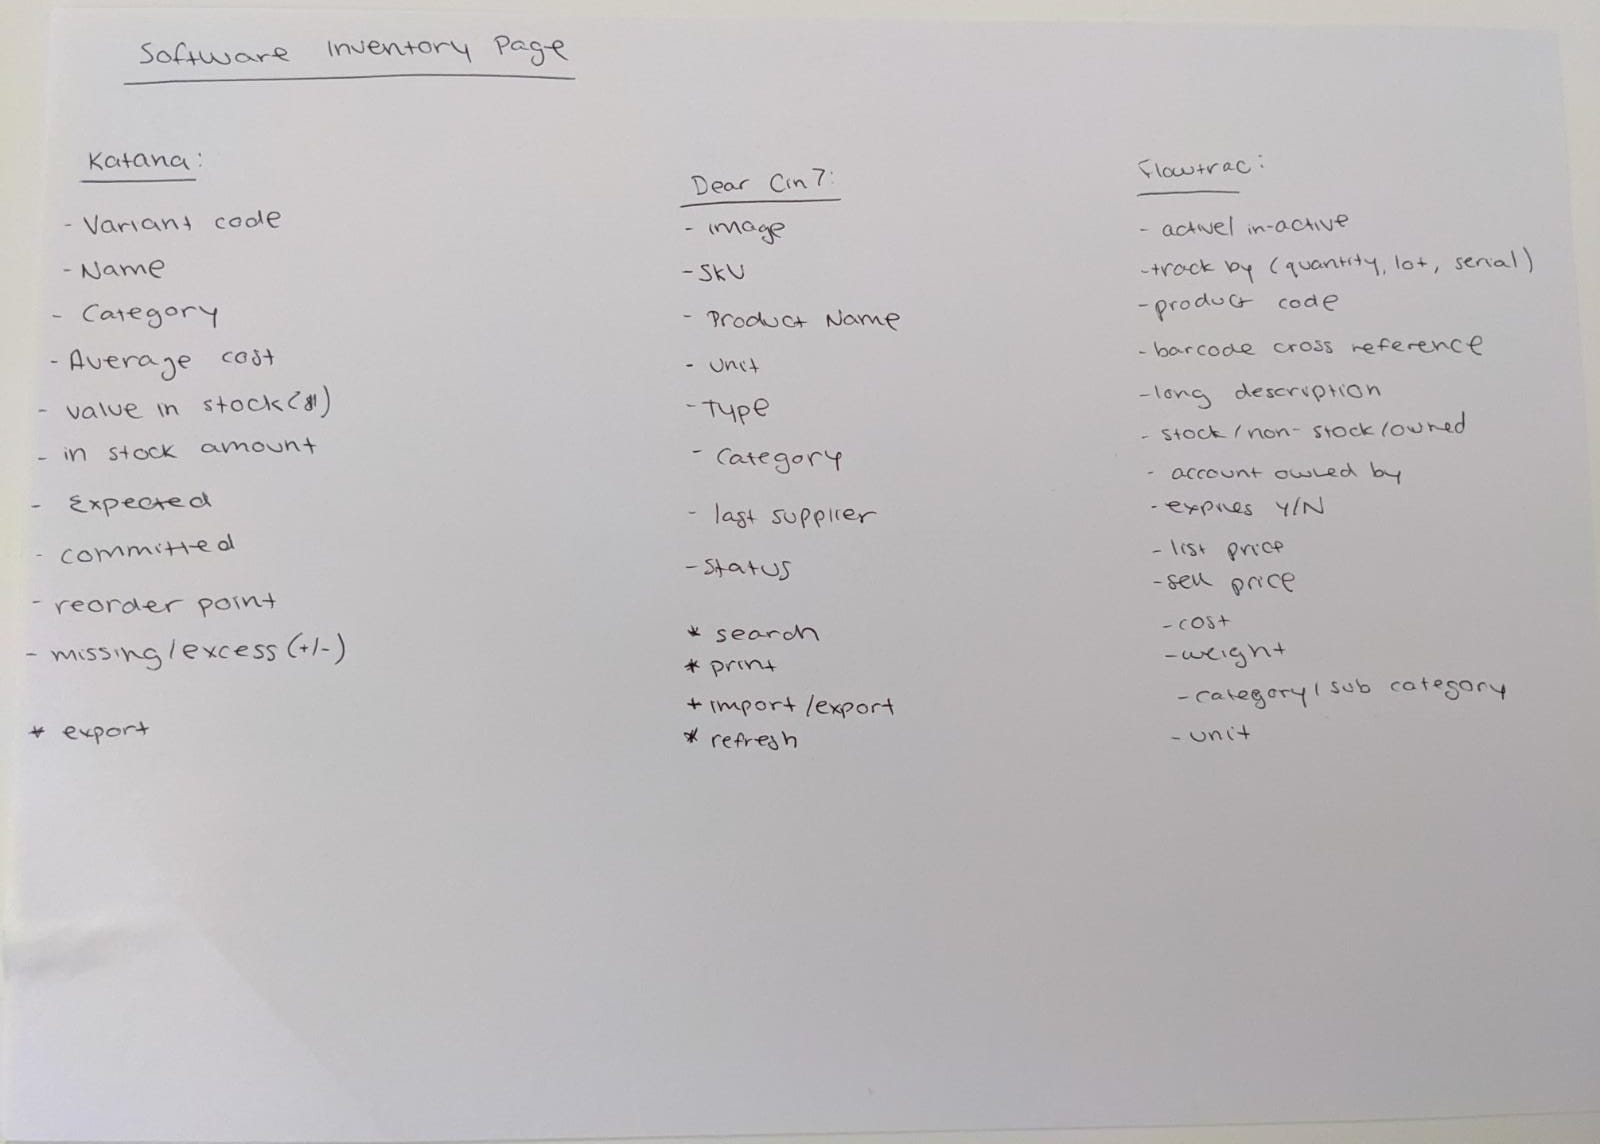 Software Inventory Page
Katana:
- Variant code
- Name
- Category
- Average cost
- value in stock ($)
- in stock amount
- Expected
- committed
- reorder point
- missing/excess (+/-)
* export
Dear Cin7:
- image
- SKU
- Product Name
- Unit
- Type
- Category
- last supplier
- Status
* search
* print
+ import/export
* refresh
Flowtrac:
- active/ in-active
- track by (quantity, lot, serial)
- product code
- barcode cross reference
- long description
- stock/non-stock/owned
- account owned by
- expires Y/N
- list price
- sell price
- cost
- weight
- category/sub category
- unit